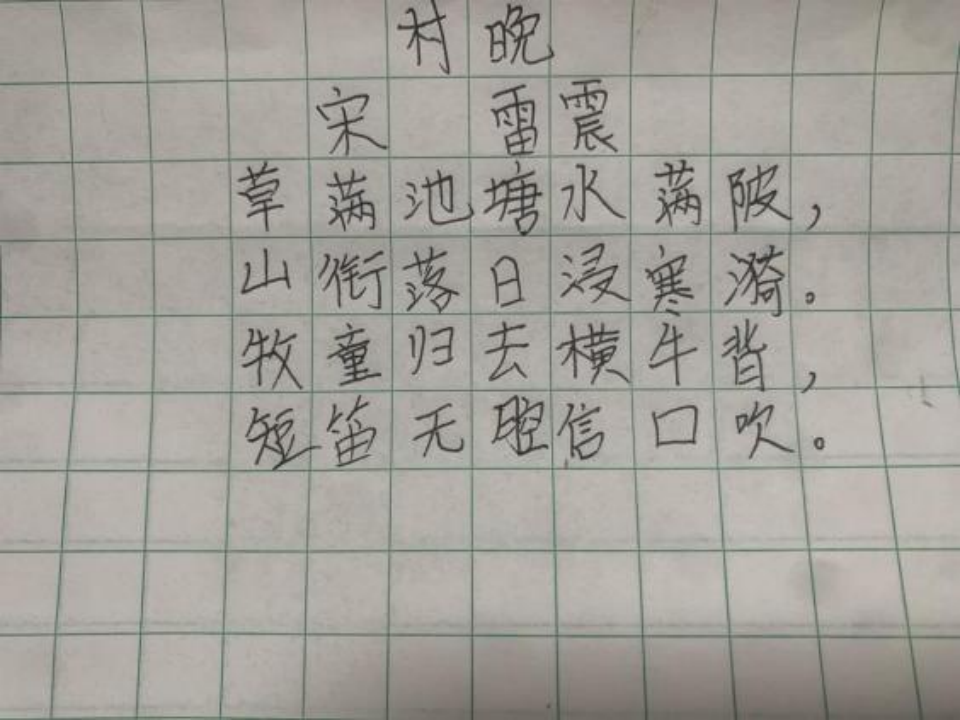 村晚
宋 雷震
草满池塘水满陂，
山衔落日浸寒漪。
牧童归去横牛背，
短笛无腔信口吹。